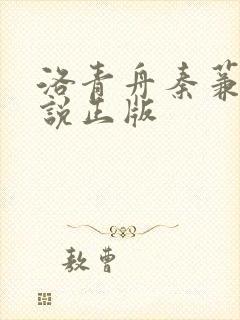 洛青舟秦蒹
說出版
敖曹